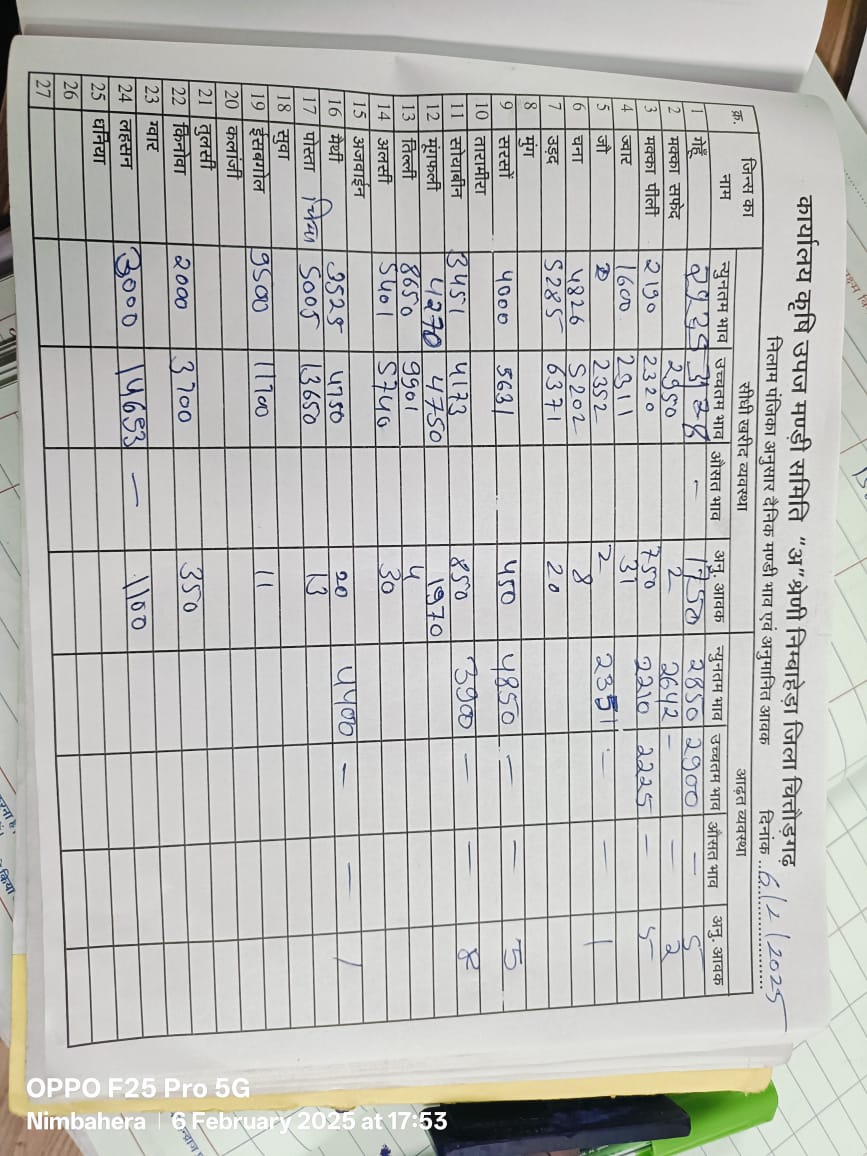 कार्यालय कृषि उपज मण्डी समिति "अ" श्रेणी निम्बाहेड़ा जिला चित्तौड़गढ़
निलाम पंजिका अनुसार दैनिक मण्डी भाव एवं अनुमानित आवक दिनांक 6/2/2025
क्र. जिन्स का नाम सीधी खरीद व्यवस्था आढ़त व्यवस्था
न्युनतम भाव उच्चतम भाव औसत भाव अनु. आवक न्युनतम भाव उच्चतम भाव औसत भाव अनु. आवक
1 गेहूँ - 1750 2850 2900 - 5
2 मक्का सफेद 2350 2 2642 - - 2
3 मक्का पीली 2190 2320 750 2210 2225 - 5
4 ज्वार 1600 2911 31
5 जौ 2352 2 2351 - - 1
6 चना 4826 5202 8
7 उड़द 5285 6371 20
8 मुंग
9 सरसों 4000 5631 450 4850 - - 5
10 तारामीरा
11 सोयाबीन 3451 4173 850 3900 - - 8
12 मूंगफली 4270 4750 1970
13 तिल्ली 8650 9901 4
14 अलसी 5401 5740 30
15 अजवाईन
16 मैथी 3525 4750 20 4400 - - 1
17 पोस्ता 5005 13650 13
18 सुवा
19 ईसबगोल 9500 11700 11
20 कलांजी
21 तुलसी
22 किनोवा 2000 3700 350
23 ग्वार
24 लहसन 3000 14653 - 1100
25 धनिया
26
27
OPPO F25 Pro 5G
Nimbahera | 6 February 2025 at 17:53